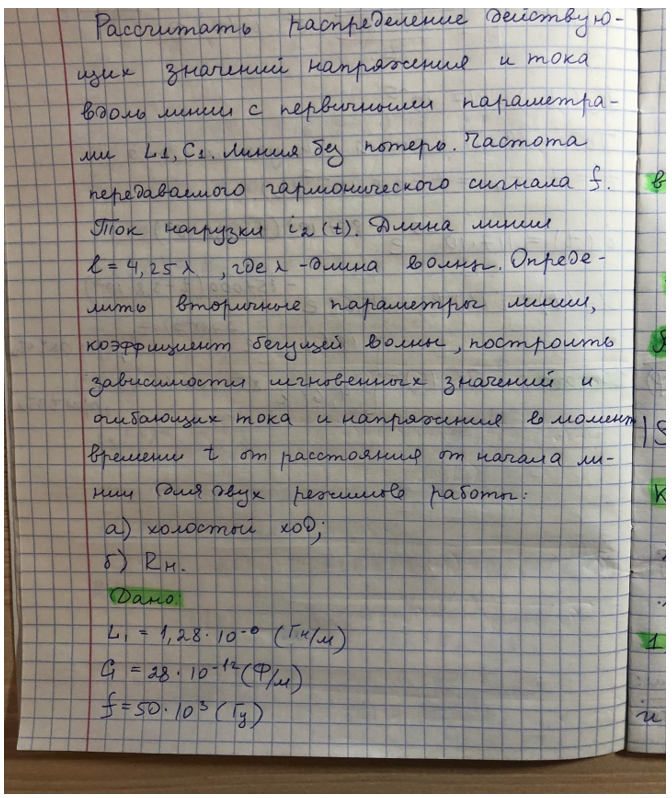 Рассчитать распределение действую-
щих значений напряжения и тока
вдоль линии с первичными параметра-
ми L1, C1. Линия без потерь. Частота
передаваемого гармонического сигнала f.
Ток нагрузки i2(t). Длина линии
l = 4,25 λ, где λ - длина волны. Опреде-
лить вторичные параметры линии,
коэффициент бегущей волны, построить
зависимости мгновенных значений и
огибающих тока и напряжения в момент
времени t от расстояния от начала ли-
нии для двух режимов работы:
а) холостой ход;
б) Rн.
Дано:
L1 = 1,28·10⁻⁶ (Гн/м)
C1 = 28·10⁻¹² (Ф/м)
f = 50·10³ (Гц)
в
1
и